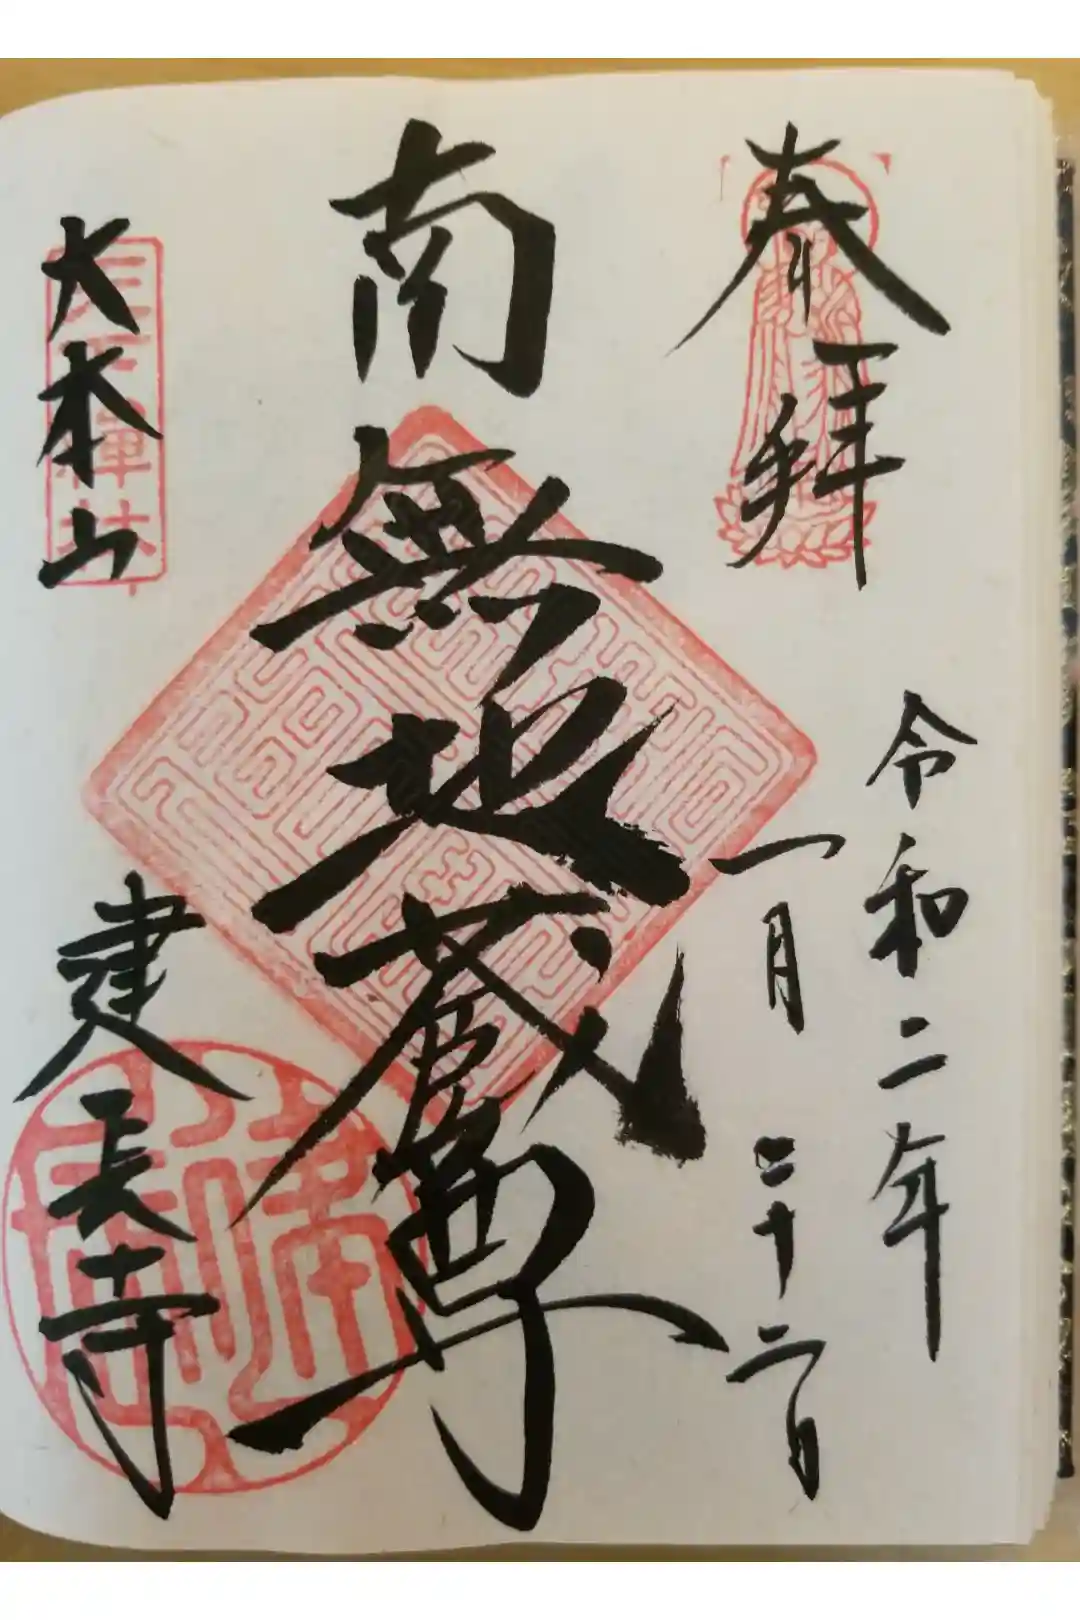 奉拝
令和二年
一月二十二日
南無地蔵尊
大本山
建長寺